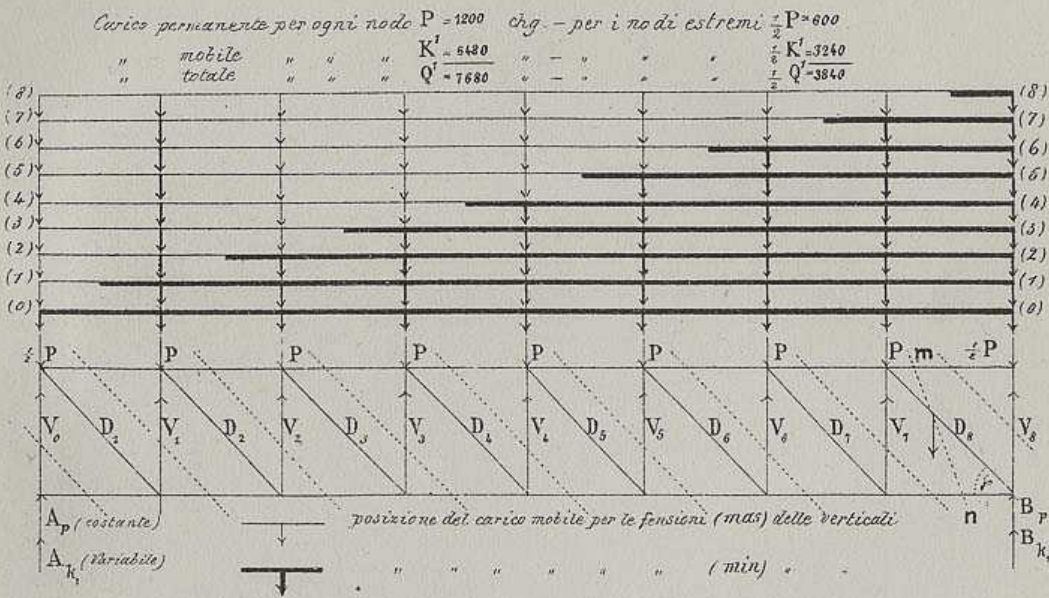 Carico permanente per ogni nodo P = 1200 chg. – per i nodi estremi ½ P = 600
„ mobile „ „ „ K¹ = 6480 „ – „ „ „ ½ K¹ = 3240
„ totale „ „ „ Q¹ = 7680 „ – „ „ „ ½ Q¹ = 3840
(8) (8)
(7) (7)
(6) (6)
(5) (5)
(4) (4)
(3) (3)
(2) (2)
(1) (1)
(0) (0)
½ P P P P P P P P m ½ P
V₀ D₁ V₁ D₂ V₂ D₃ V₃ D₄ V₄ D₅ V₅ D₆ V₆ D₇ V₇ D₈ V₈
γ
A p (costante) posizione del carico mobile per le tensioni (mas) delle verticali n B p
A k₁ (Variabile) „ „ „ „ „ „ (min) „ „ B k₁